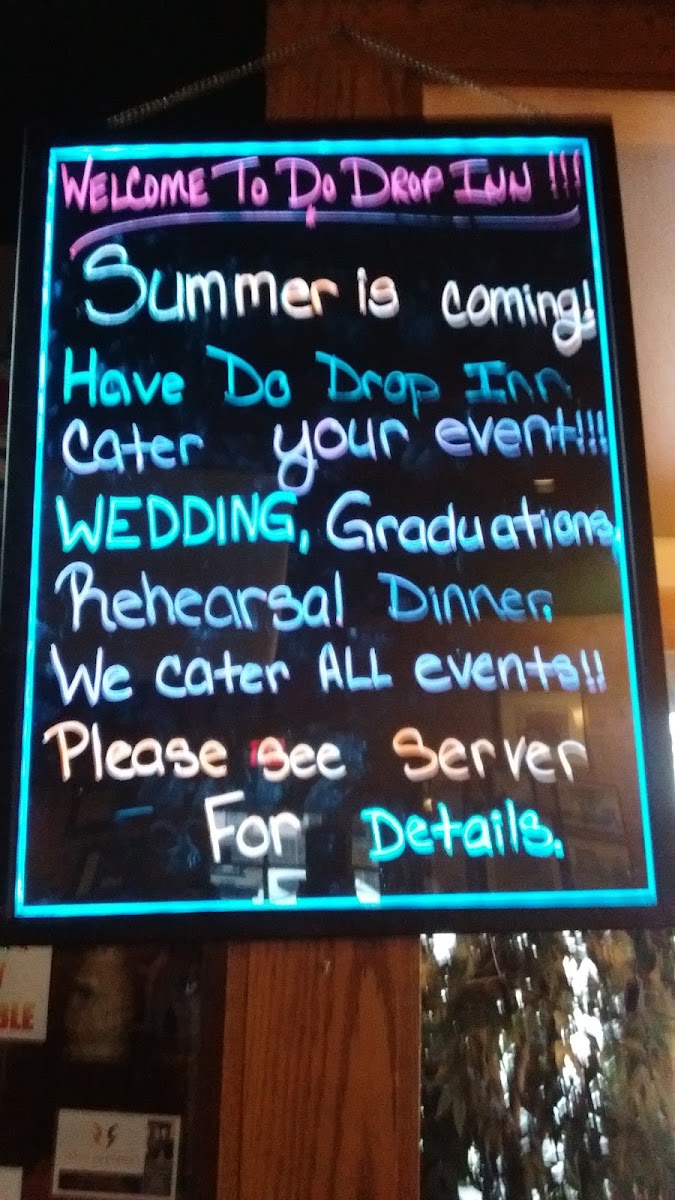 WELCOME TO DO DROP INN !!!
Summer is coming!
Have Do Drop Inn
Cater your event!!!
WEDDING, Graduations,
Rehearsal Dinner.
We cater ALL events!!
Please see Server
For Details.
BLE